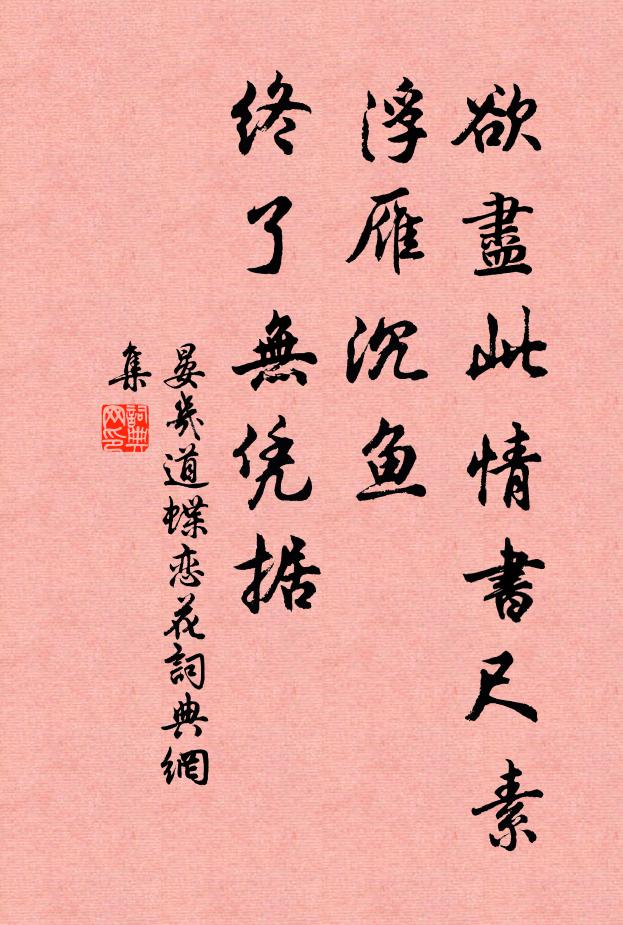 欲盡此情書尺素
浮雁沉鱼
终了無凭据
晏幾道蝶恋花詞典網
集
詞典
网印